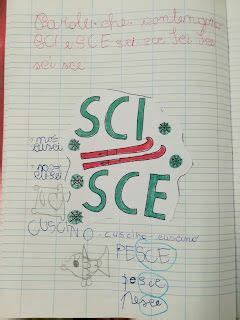 Parole che contengono
SCI e SCE sci sce sci sce
sci sce
SCI
SCE
CUSCINO cuscino cuscino
PESCE
pesce
pesce